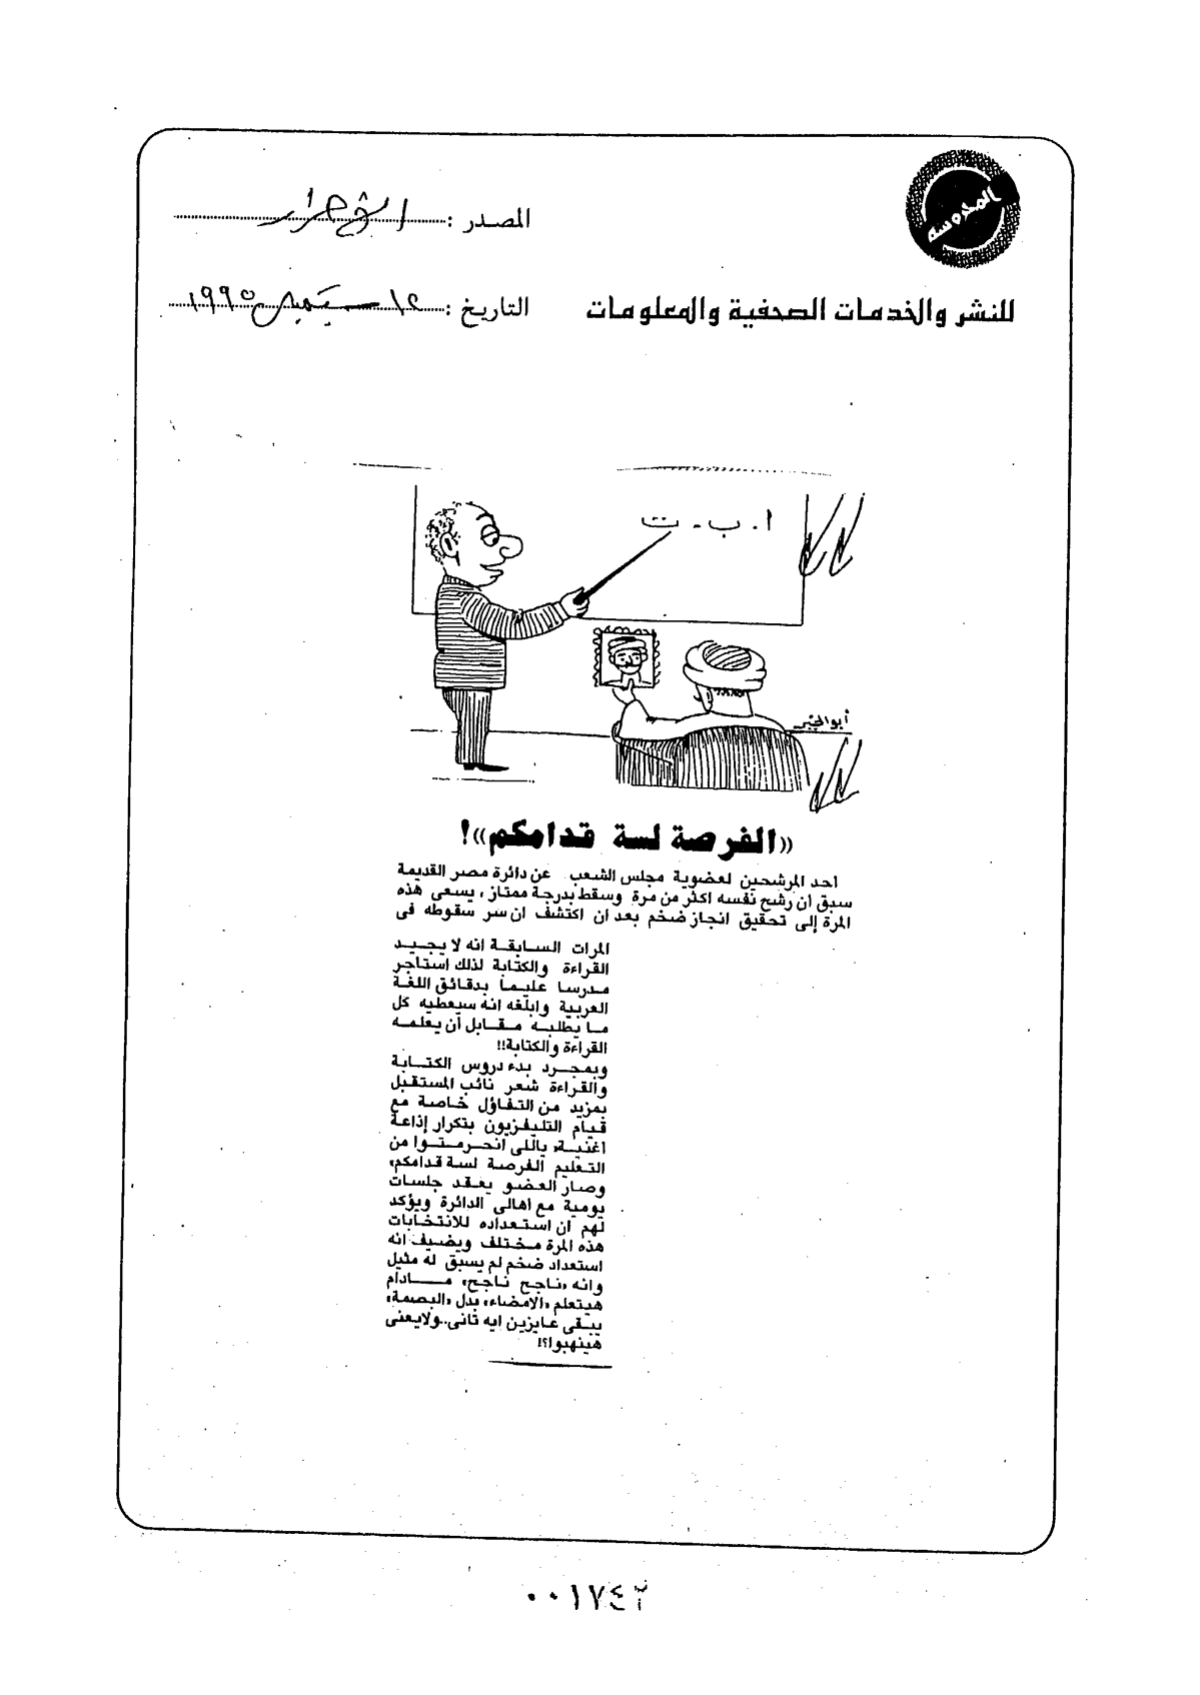 المحروسة
المصدر : الأحرار
للنشر والخدمات الصحفية والمعلومات
التاريخ : ١٢ سبتمبر ١٩٩٥
ا . ب . ت
أبوالخير
«الفرصة لسة قدامكم»!
احد المرشحين لعضوية مجلس الشعب عن دائرة مصر القديمة
سبق أن رشح نفسه اكثر من مرة وسقط بدرجة ممتاز ، يسعى هذه
المرة إلى تحقيق انجاز ضخم بعد ان اكتشف ان سر سقوطه فى
المرات السابقة انه لا يجيد
القراءة والكتابة لذلك استاجر
مدرسا عليما بدقائق اللغة
العربية وابلغه انه سيعطيه كل
ما يطلبه مقابل أن يعلمه
القراءة والكتابة!!
وبمجرد بدء دروس الكتابة
والقراءة شعر نائب المستقبل
بمزيد من التفاؤل خاصة مع
قيام التليفزيون بتكرار إذاعة
اغنية« ياللى انحرمتوا من
التعليم الفرصة لسة قدامكم»
وصار العضو يعقد جلسات
يومية مع اهالى الدائرة ويؤكد
لهم ان استعداده للانتخابات
هذه المرة مختلف ويضيف انه
استعداد ضخم لم يسبق له مثيل
وانه «ناجح ناجح» مادام
هيتعلم «الامضاء» بدل «البصمة»
يبقى عايزين ايه تانى..ولايعنى
هينهبوا؟!
٠٠١٧٤٢